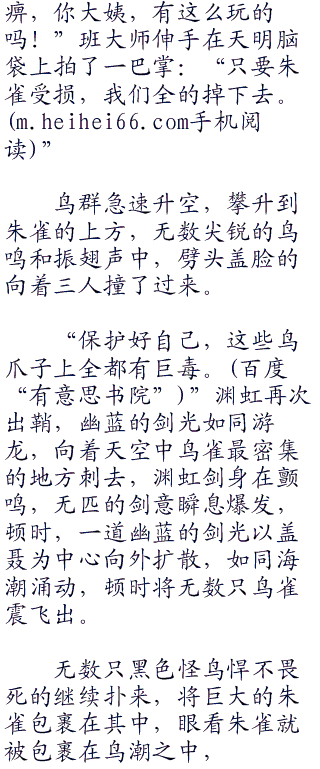 痹，你大姨，有这么玩的
吗！”班大师伸手在天明脑
袋上拍了一巴掌：“只要朱
雀受损，我们全的掉下去。
(m.heihei66.com手机阅
读)”
鸟群急速升空，攀升到
朱雀的上方，无数尖锐的鸟
鸣和振翅声中，劈头盖脸的
向着三人撞了过来。
“保护好自己，这些鸟
爪子上全都有巨毒。(百度
“有意思书院”)”渊虹再次
出鞘，幽蓝的剑光如同游
龙，向着天空中鸟雀最密集
的地方刺去，渊虹剑身在颤
鸣，无匹的剑意瞬息爆发，
顿时，一道幽蓝的剑光以盖
聂为中心向外扩散，如同海
潮涌动，顿时将无数只鸟雀
震飞出。
无数只黑色怪鸟悍不畏
死的继续扑来，将巨大的朱
雀包裹在其中，眼看朱雀就
被包裹在鸟潮之中，